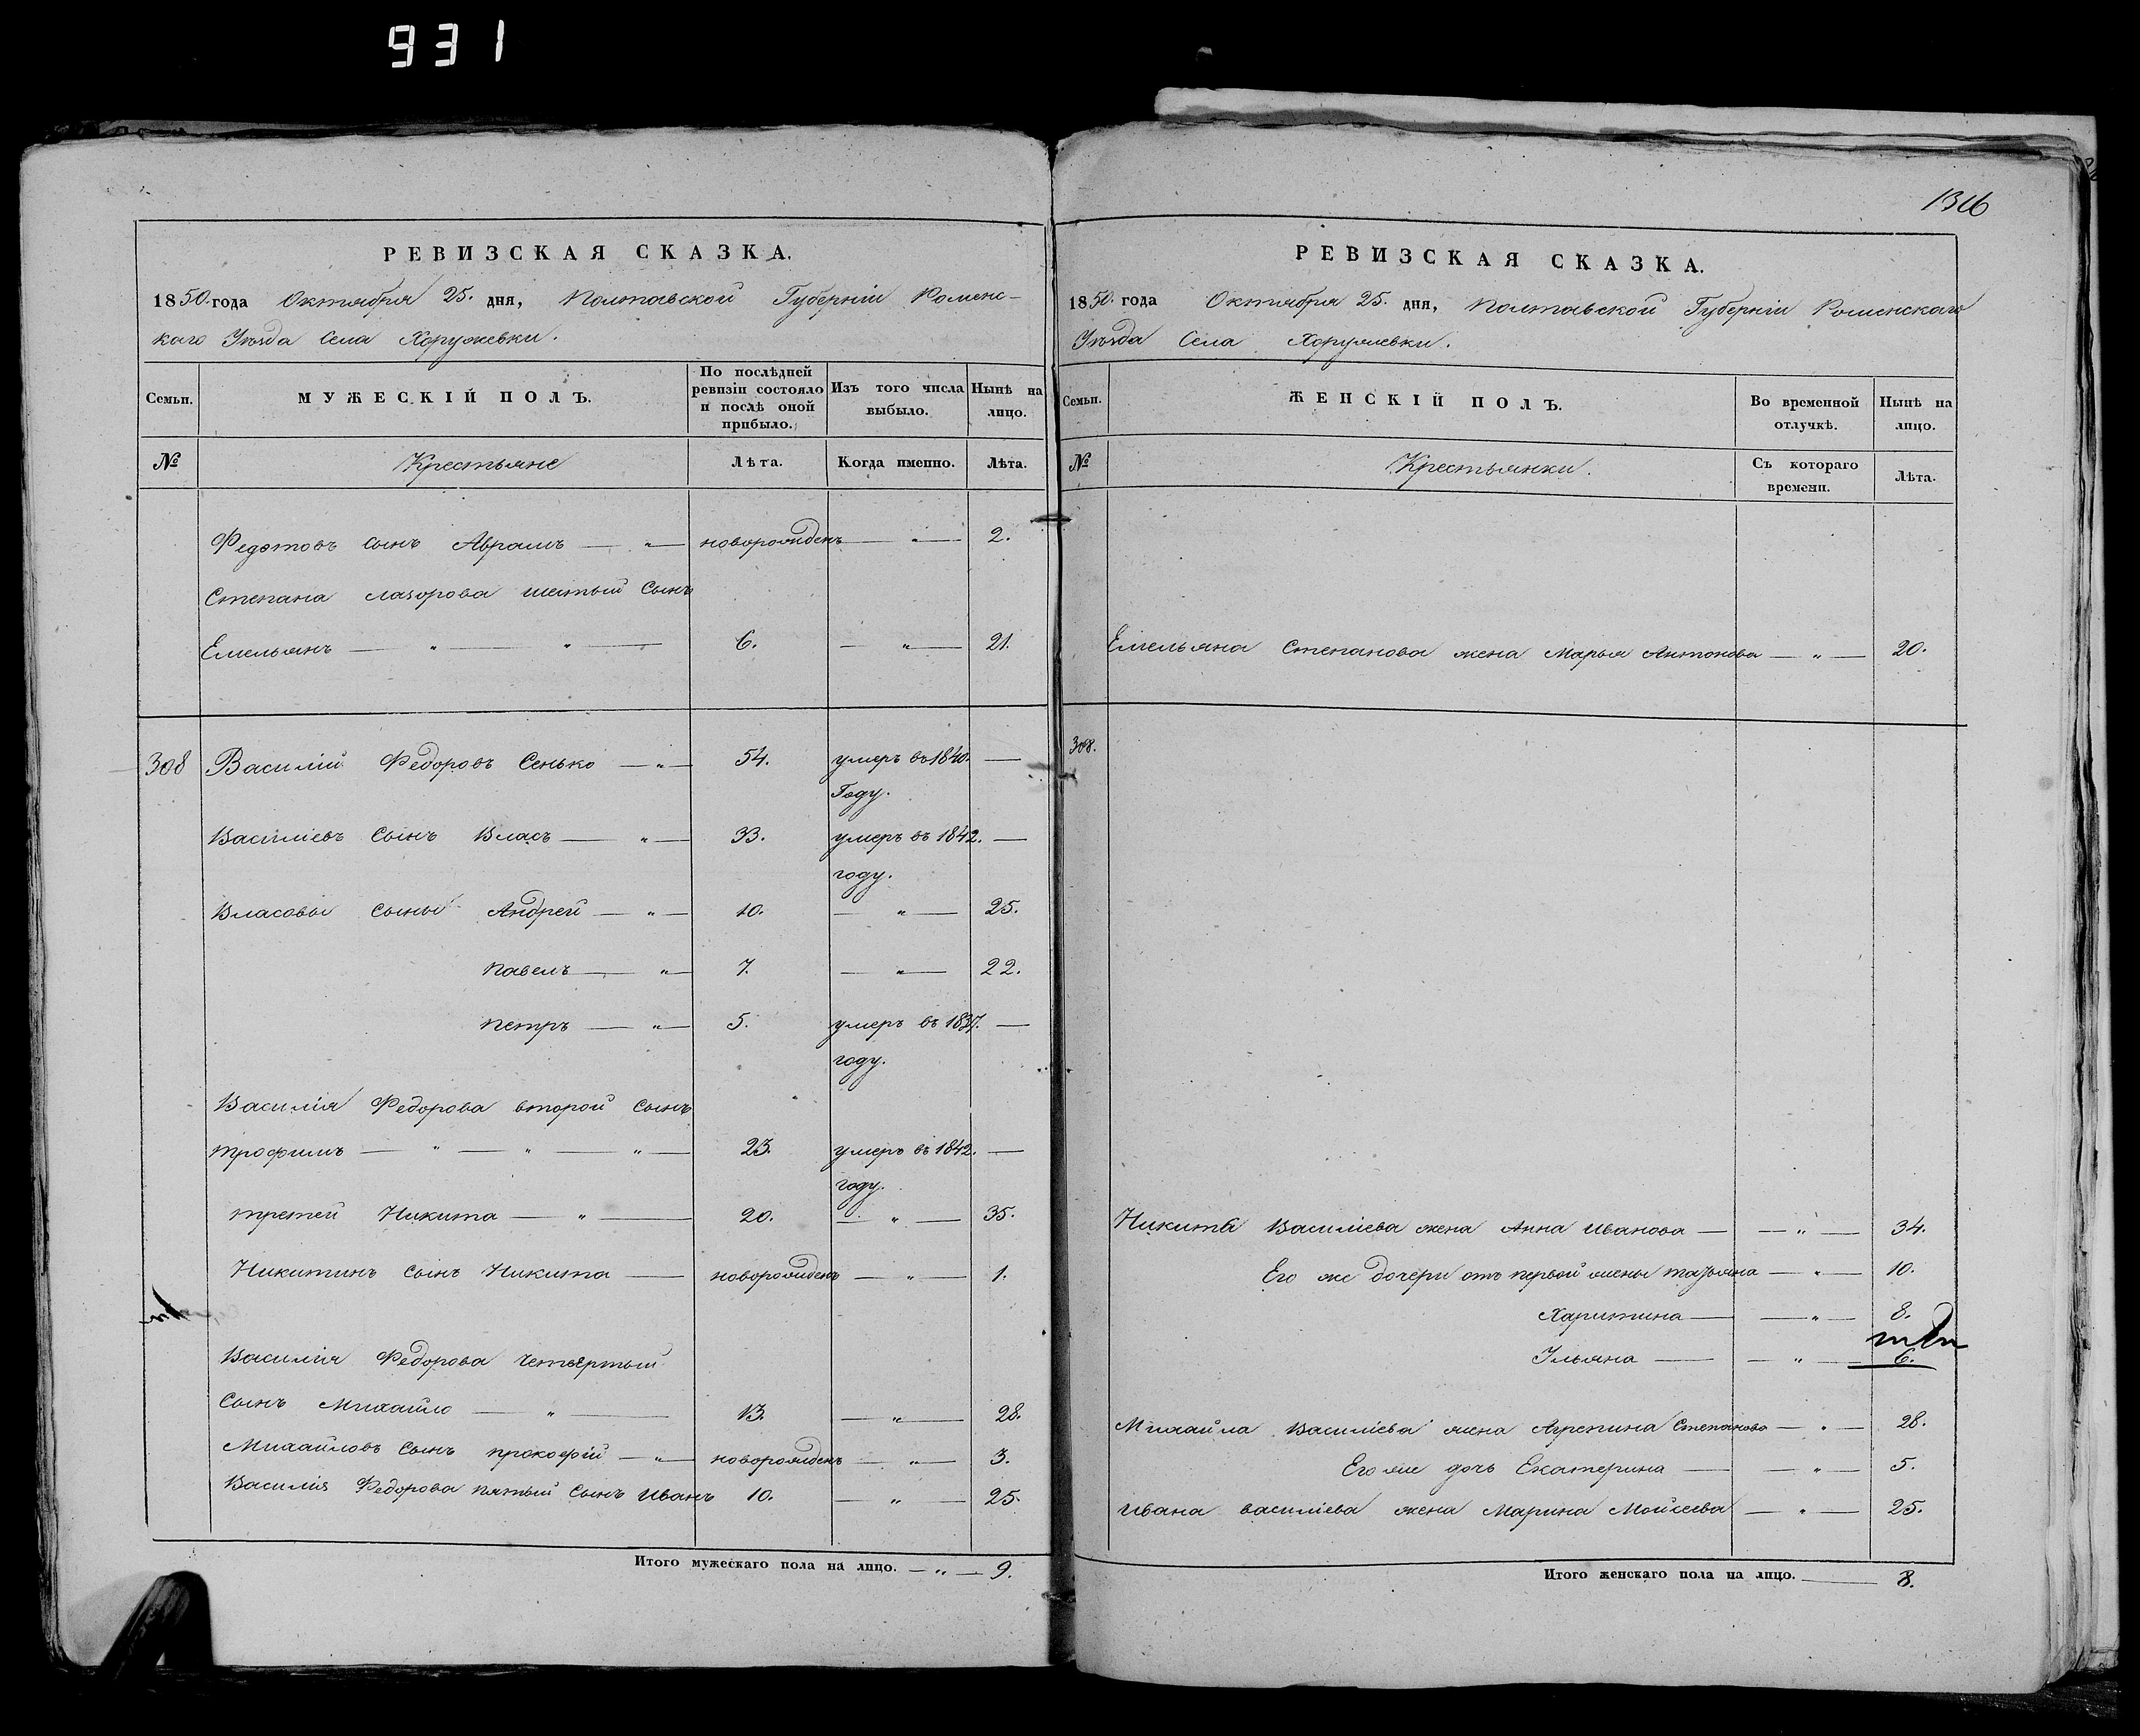 931
РЕВИЗСКАЯ СКАЗКА.
1850. года Октября 25. дня, Полтавской Губерніи Роменс-
каго Уѣзда Села Хоружевки.
Семьи.
МУЖЕСКІЙ ПОЛЪ.
По послѣдней ревизіи состояло и послѣ оной прибыло.
Изъ того числа выбыло.
Нынѣ на лицо.
№ Крестьяне Лѣта. Когда именно. Лѣта.
Федотовъ сынъ Абрамъ — " — новорожденъ — " — 2.
Степана Лазорова шестый Сынъ
Емельянъ — " — " — 6. — " — 21.
308 Василій Федоровъ Сенько — " — 54. умеръ въ 1840. —
Году.
Василіевъ Сынъ Власъ — " — 33. умеръ въ 1842. —
году.
Власовы сыны Андрей — " — 10. — " — 25.
Павелъ — " — 7. — " — 22.
Петръ — " — 5. умеръ въ 1837. —
году.
Василія Федорова второй Сынъ
Трофимъ — " — " — " — 23. умеръ въ 1842. —
году.
третей Никита — " — 20. — " — 35.
Никитинъ сынъ Никита — новорожденъ — " — 1.
Василія Федорова четвертый
Сынъ Михайло — " — 13. — " — 28.
Михайловъ Сынъ Прокофій — " — новорожденъ — " — 3.
Василія Федорова пятый Сынъ Иванъ 10. — " — 25.
Итого мужескаго пола на лицо. — " — 9.
1316
РЕВИЗСКАЯ СКАЗКА.
1850. года Октября 25. дня, Полтавской Губерніи Роменскаго
Уѣзда Села Хоружевки.
Семьи.
ЖЕНСКІЙ ПОЛЪ.
Во временной отлучкѣ.
Нынѣ на лицо.
№ Крестьянки. Съ котораго времени. Лѣта.
Емельяна Степанова жена Марья Антонова — " — 20.
308.
Никиты Василіева жена Анна Иванова — — " — 34.
Его же дочери отъ первой жены Татьяна — " — 10.
Харитина — — " — 8.
Ульяна — — " — 6.
Михайла Василіева жена Агрепина Степанова — " — 28.
Его же дочь Екатерина — — " — 5.
Ивана Василіева жена Марина Мойсеева — " — 25.
Итого женскаго пола на лицо. — 8.